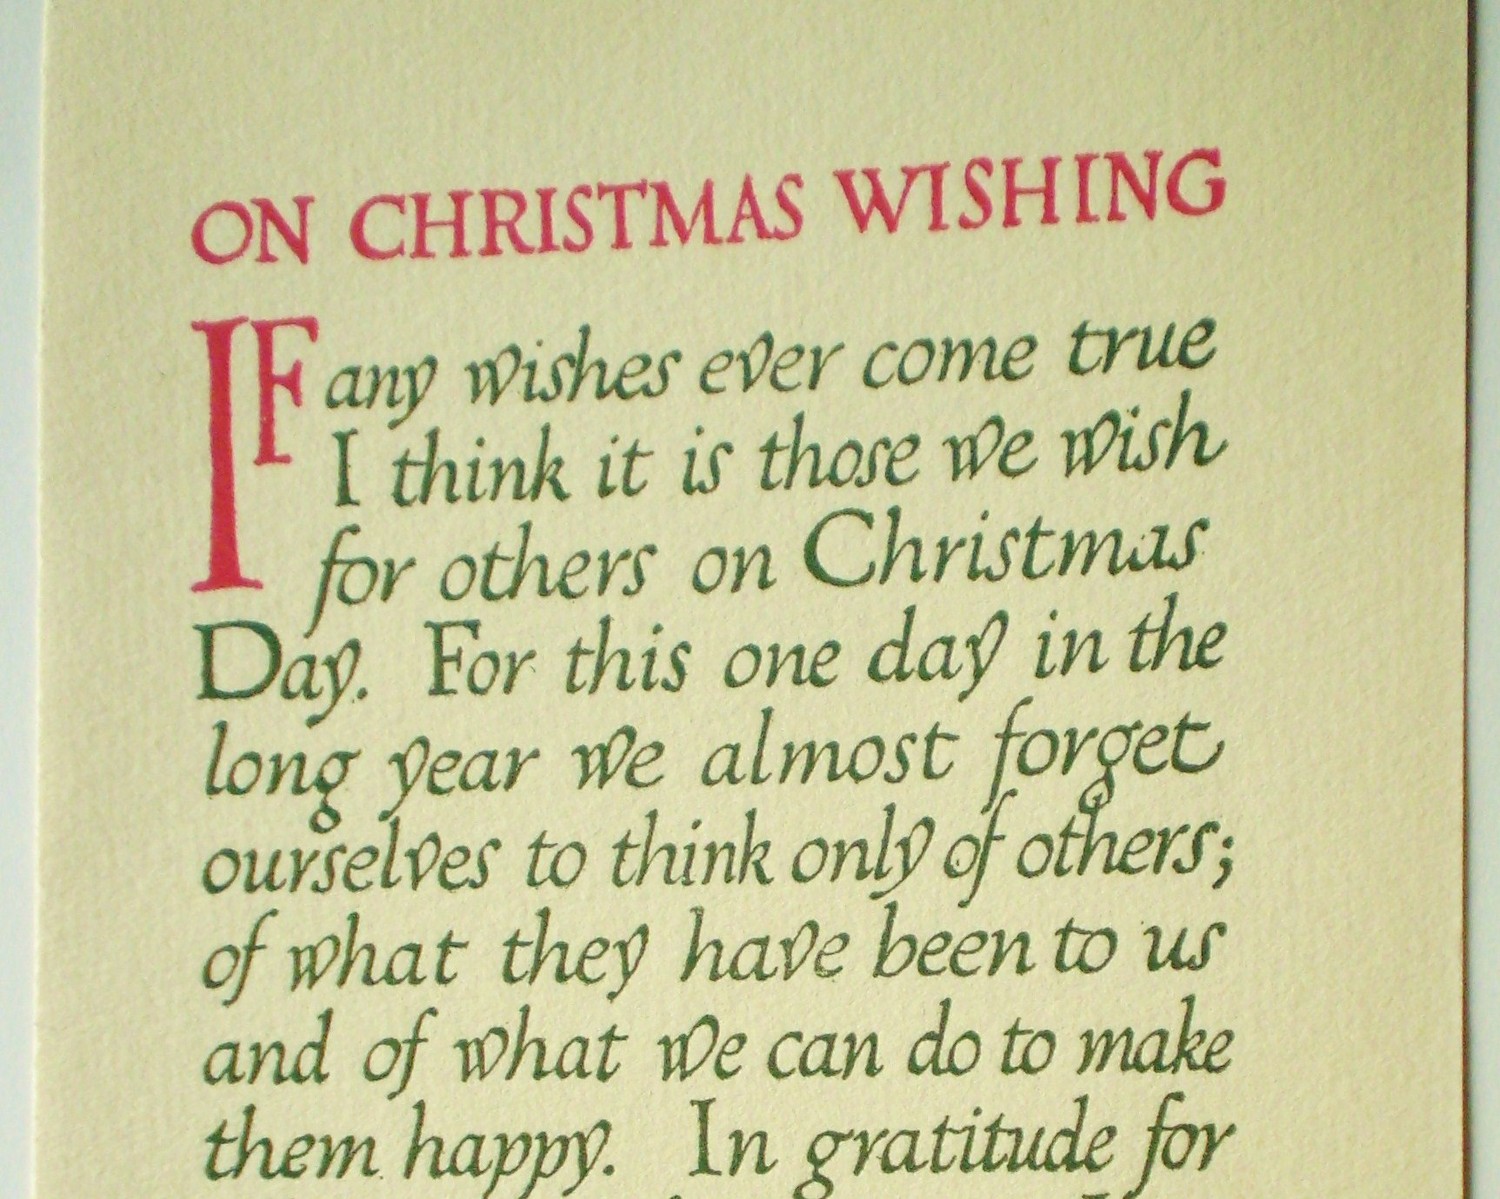 ON CHRISTMAS WISHING
IF any wishes ever come true
I think it is those we wish
for others on Christmas
Day. For this one day in the
long year we almost forget
ourselves to think only of others;
of what they have been to us
and of what we can do to make
them happy. In gratitude for